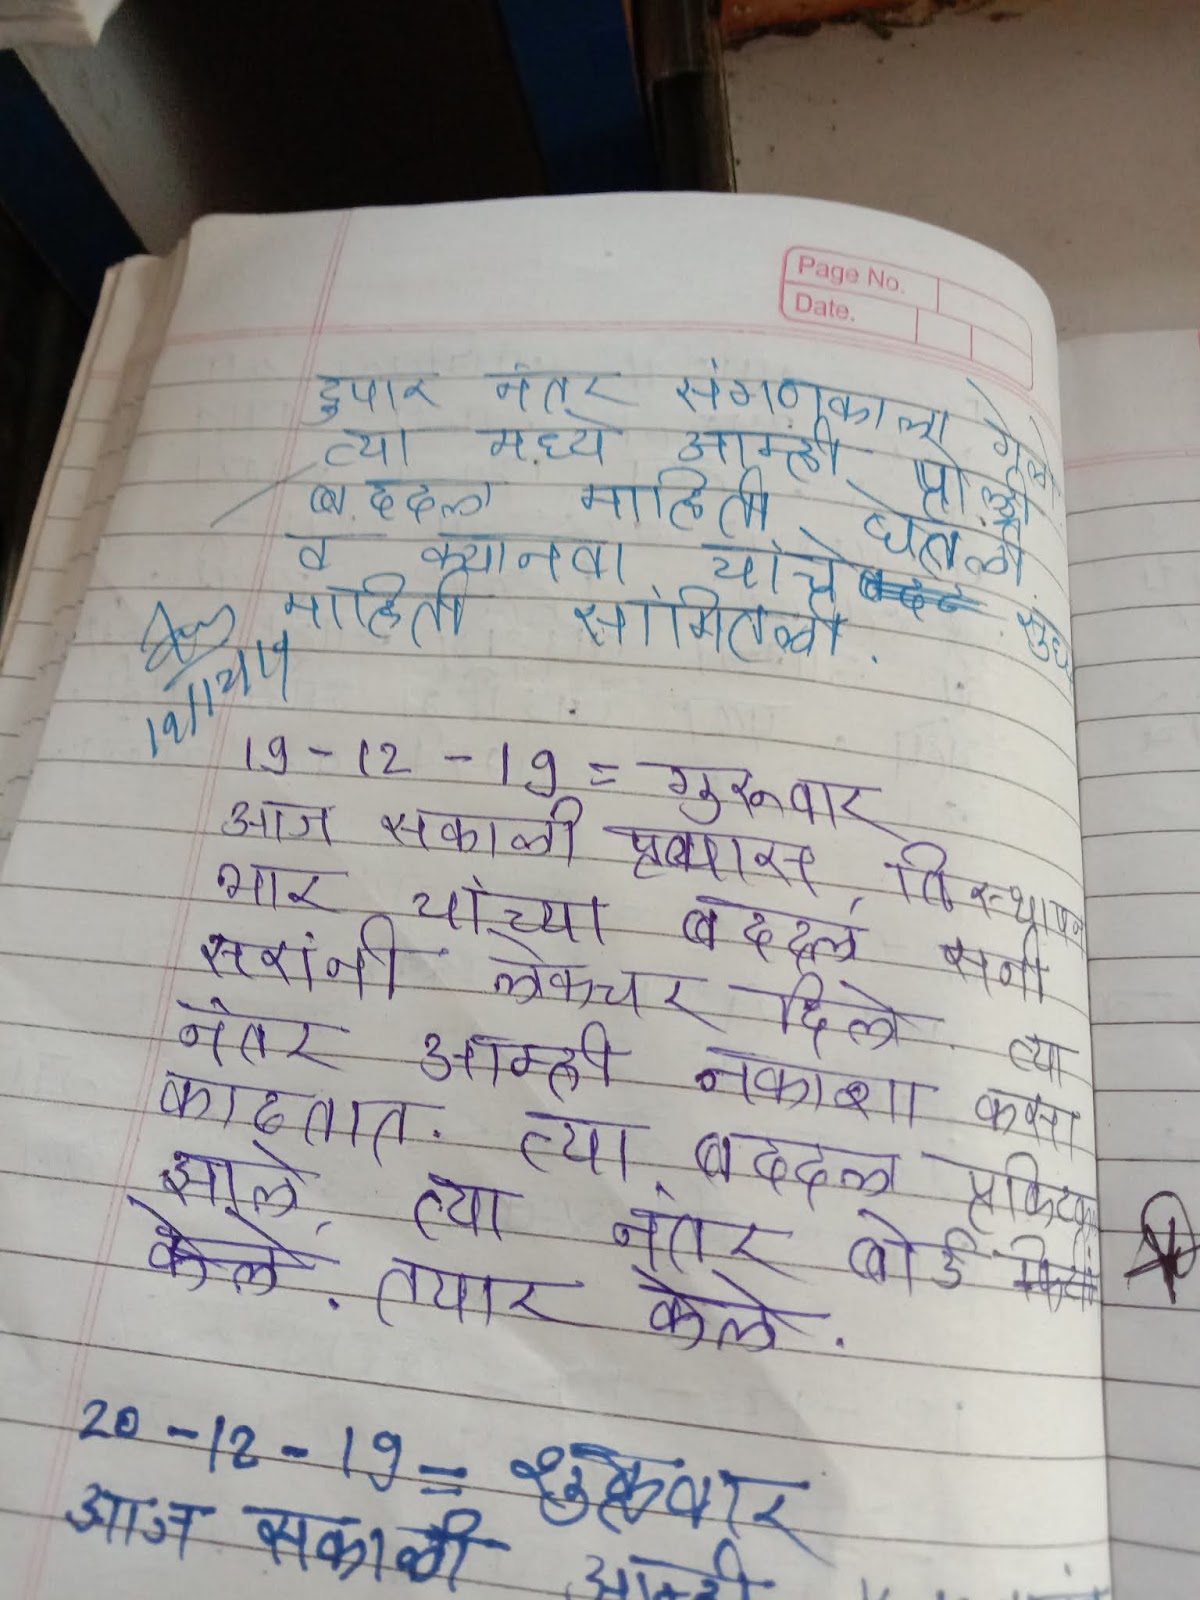 Page No.
Date.
दुपार नंतर संगणकाला गेलो
त्या मध्ये आम्ही
बददल माहिती घेतली
व क्यानवा यांचे सुध्द
माहिती सांगितली.
19/12/19
19-12-19 = गुरुवार
आज सकाळी
भार यांच्या बददल सनी
सरांनी लेकचर दिले. त्या
नंतर आम्ही नकाशा कसा
काढतात. त्या बददल
झाले, त्या नंतर बोर्ड
केले. तयार केले.
20-12-19 = शुक्रवार
आज सकाळी आम्ही